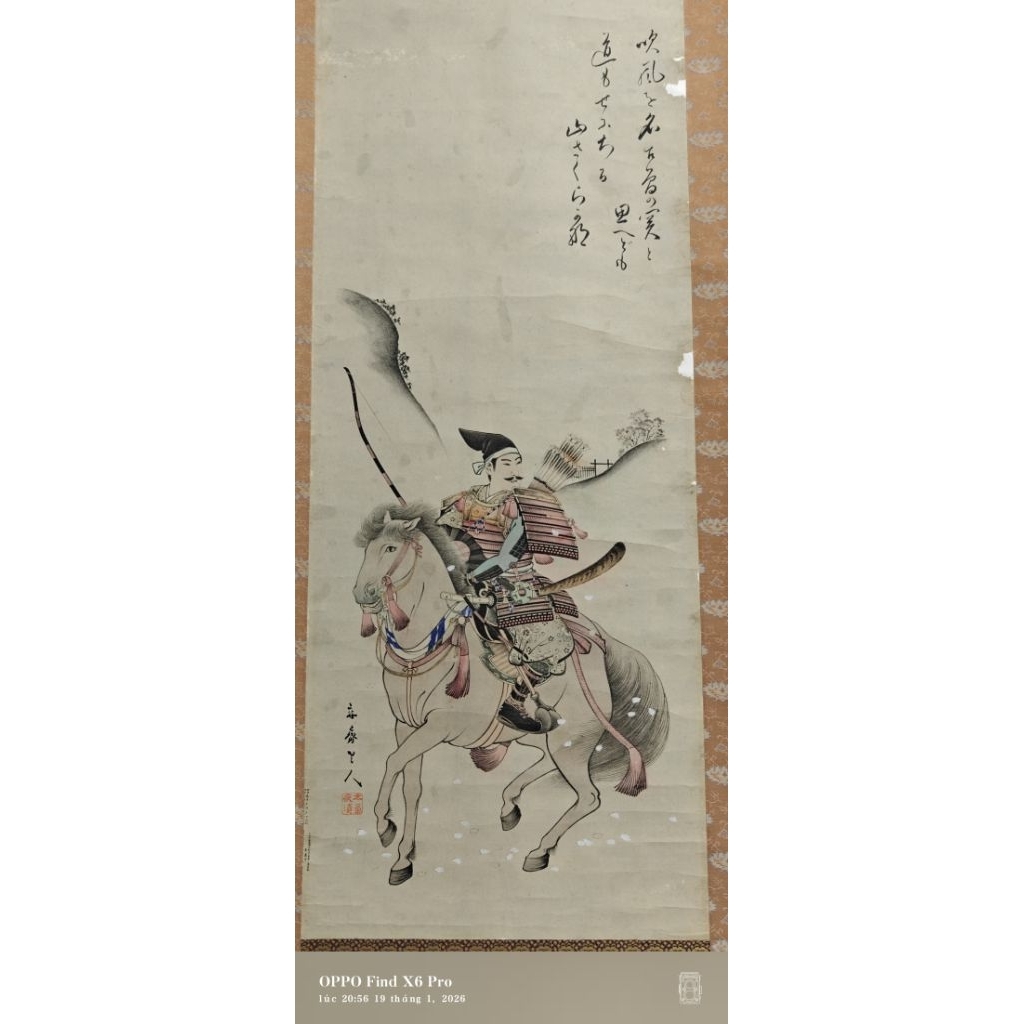 吹風を名古曽の関と
思へども
道もせにちる
山さくら哉
OPPO Find X6 Pro
lúc 20:56 19 tháng 1, 2026